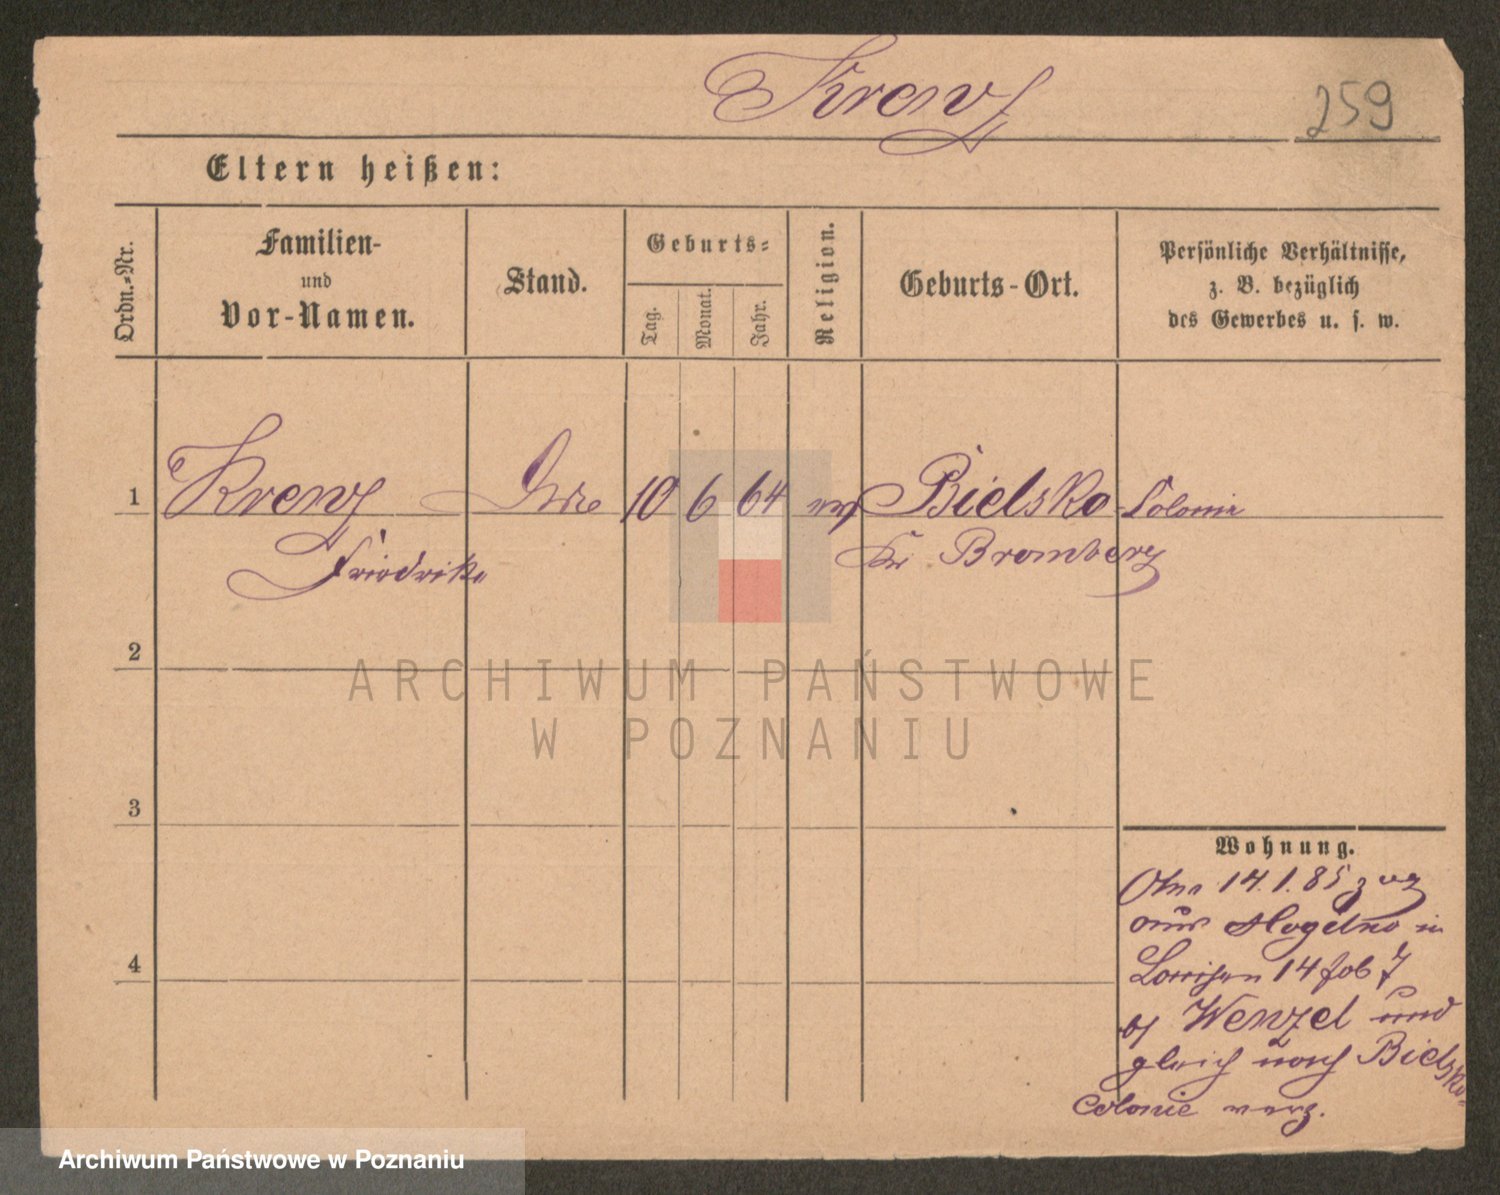 Krenz
259
Eltern heißen:
Ordn.-Nr.
Familien-
und
Vor-Namen.
Stand.
Geburts-
Tag.
Monat.
Jahr.
Religion.
Geburts-Ort.
Persönliche Verhältnisse,
z. B. bezüglich
des Gewerbes u. s. w.
1 Krenz 10 6 64 ev Bielsko-Colonie
Friedrike Kr Bromberg
2
3
4
Wohnung.
Am 14.1.85 zug
aus Mogilno in
14
Wenzel und
gleich nach Bielsko-
Colonie verz.
ARCHIWUM PAŃSTWOWE
W POZNANIU
Archiwum Państwowe w Poznaniu